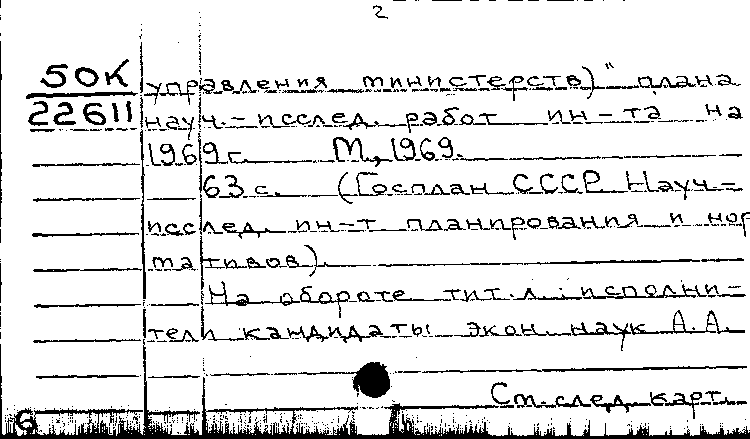 2
50К
22611
управления министерств)" плана
науч.-исслед. работ ин-та на
1969г. М., 1969.
63 с. (Госплан СССР Науч-
исслед. ин-т планирования и нор
мативов).
На обороте тит.л.: исполни-
тели кандидаты экон. наук А.А.
См. след. карт.
6